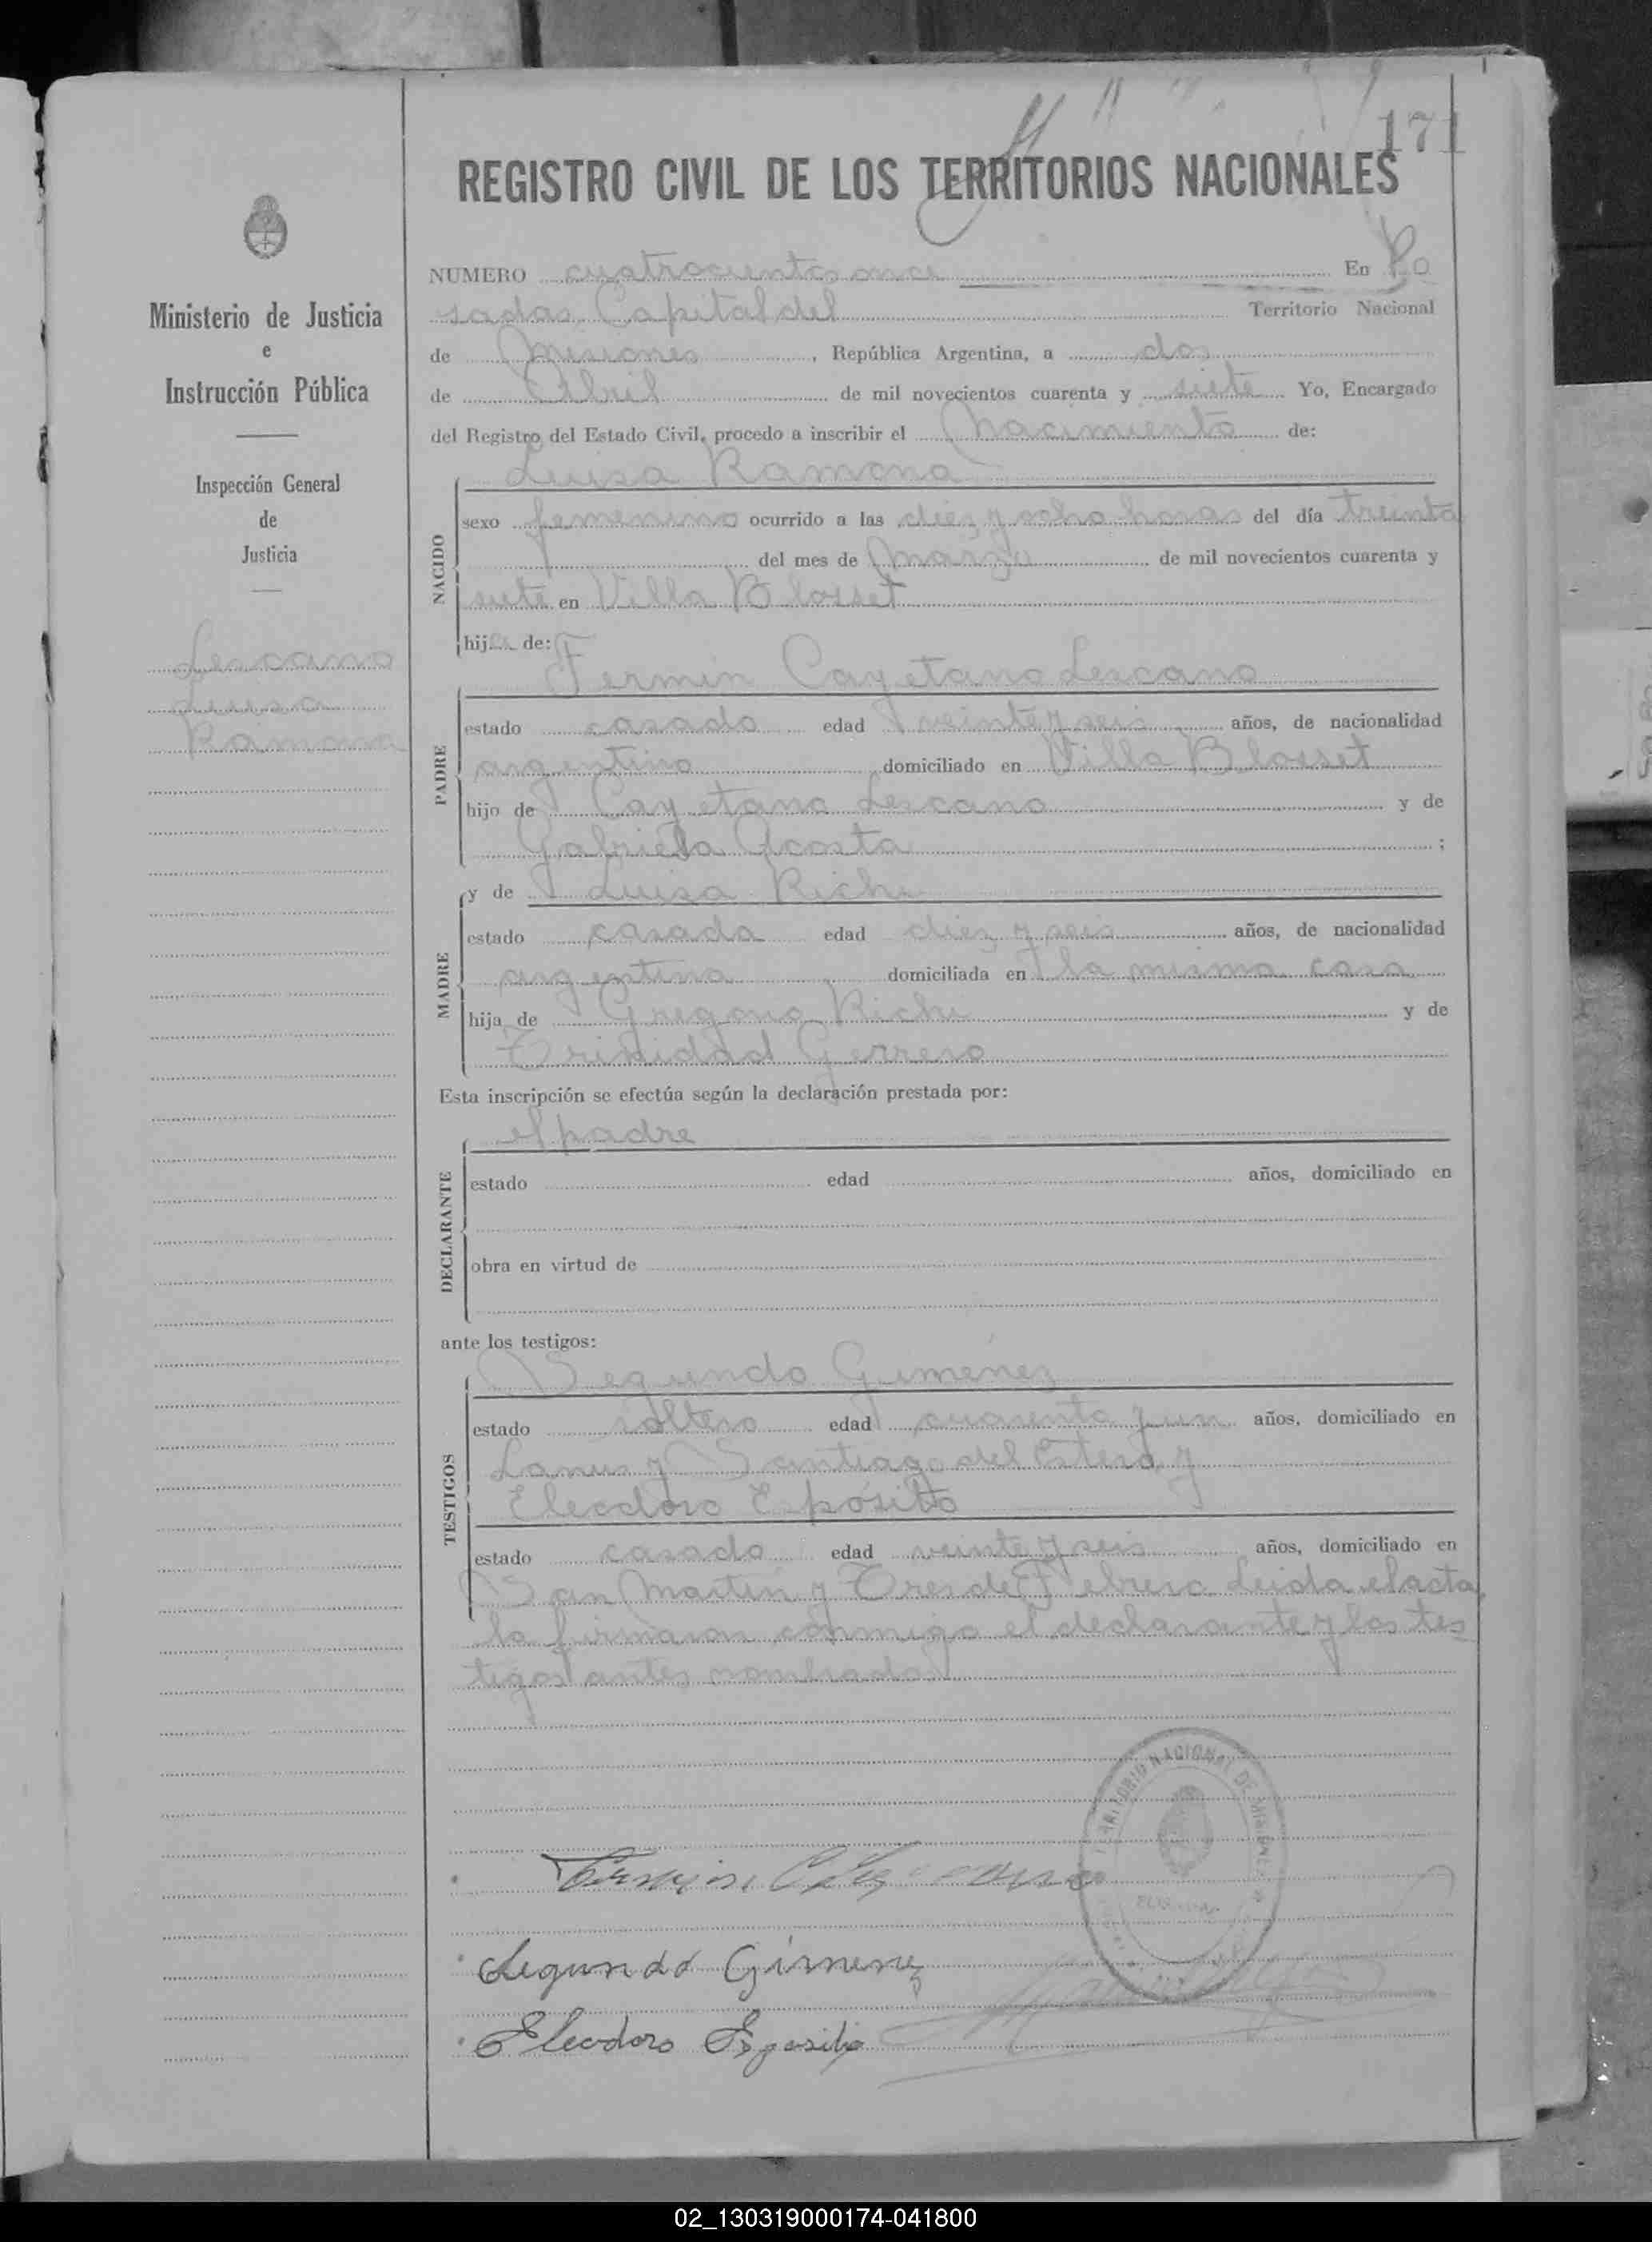 171
REGISTRO CIVIL DE LOS TERRITORIOS NACIONALES
NUMERO cuatrocientos once En Po
sadas Capital del Territorio Nacional
de Misiones, República Argentina, a dos
de Abril de mil novecientos cuarenta y siete Yo, Encargado
del Registro del Estado Civil, procedo a inscribir el Nacimiento de:
Ministerio de Justicia
e
Instrucción Pública
Inspección General
de
Justicia
Lescano
Luisa
Ramona
NACIDO
Luisa Ramona
sexo femenino ocurrido a las diez y ocho horas del día treinta
del mes de Marzo de mil novecientos cuarenta y
siete en Villa Blosset
hija de:
PADRE
Fermin Cayetano Lescano
estado casado edad veinte y seis años, de nacionalidad
argentino domiciliado en Villa Blosset
hijo de Cayetano Lescano y de
Gabriela Acosta;
MADRE
y de Luisa Richi
estado casada edad diez y seis años, de nacionalidad
argentina domiciliada en la misma casa
hija de Gregorio Richi y de
Trinidad Gerrero
Esta inscripción se efectúa según la declaración prestada por:
DECLARANTE
el padre
estado edad años, domiciliado en
obra en virtud de
ante los testigos:
TESTIGOS
Segundo Gimenez
estado soltero edad cuarenta y un años, domiciliado en
Lanus y Santiago del Estero y
Eleodoro Espósito
estado casado edad veinte y seis años, domiciliado en
San Martin y Tres de Febrero Leida el acta
la firmaron conmigo el declarante y los tes
tigos antes nombrados
TERRITORIO NACIONAL DE MISIONES
Fermin C Lescano
Segundo Gimenez
Eleodoro Esposito
02_130319000174-041800